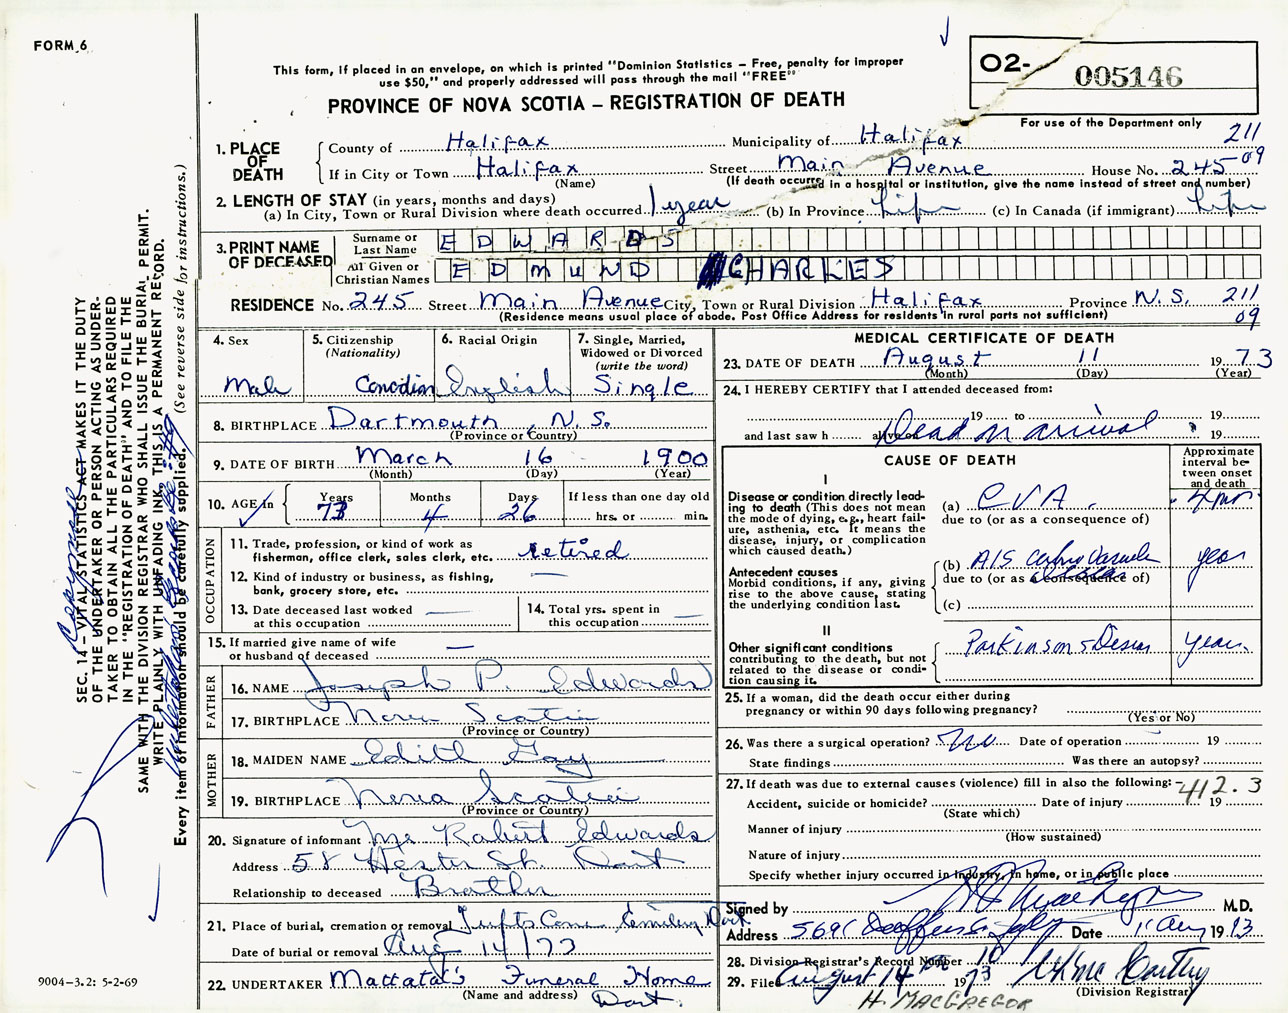 FORM 6
This form, if placed in an envelope, on which is printed "Dominion Statistics – Free, penalty for improper
use $50," and properly addressed will pass through the mail "FREE"
O2- 005146
PROVINCE OF NOVA SCOTIA – REGISTRATION OF DEATH
For use of the Department only
211
09
1. PLACE OF DEATH
County of Halifax Municipality of Halifax
If in City or Town Halifax Street Main Avenue House No. 245
(Name) (If death occurred in a hospital or institution, give the name instead of street and number)
2. LENGTH OF STAY (in years, months and days)
(a) In City, Town or Rural Division where death occurred 1 year (b) In Province Life (c) In Canada (if immigrant) Life
3. PRINT NAME OF DECEASED
Surname or Last Name EDWARDS
All Given or Christian Names EDMUND CHARLES
RESIDENCE No. 245 Street Main Avenue City, Town or Rural Division Halifax Province N.S. 211
(Residence means usual place of abode. Post Office Address for residents in rural parts not sufficient) 09
4. Sex
Male
5. Citizenship
(Nationality)
Canadian
6. Racial Origin
English
7. Single, Married,
Widowed or Divorced
(write the word)
Single
8. BIRTHPLACE Dartmouth, N.S.
(Province or Country)
9. DATE OF BIRTH March 16 1900
(Month) (Day) (Year)
10. AGE in Years Months Days If less than one day old
73 4 26 hrs. or min.
OCCUPATION
11. Trade, profession, or kind of work as
fisherman, office clerk, sales clerk, etc. retired
12. Kind of industry or business, as fishing,
bank, grocery store, etc. —
13. Date deceased last worked
at this occupation —
14. Total yrs. spent in
this occupation —
15. If married give name of wife
or husband of deceased —
FATHER
16. NAME Joseph P. Edwards
17. BIRTHPLACE Nova Scotia
(Province or Country)
MOTHER
18. MAIDEN NAME Edith Gay
19. BIRTHPLACE Nova Scotia
(Province or Country)
20. Signature of informant Mr Robert Edwards
Address 58 Hester St. Dart
Relationship to deceased Brother
21. Place of burial, cremation or removal Tufts Cove Cemetery Dart
Date of burial or removal Aug 14/73
22. UNDERTAKER Mattatal's Funeral Home
(Name and address) Dart.
MEDICAL CERTIFICATE OF DEATH
23. DATE OF DEATH August 11 1973
(Month) (Day) (Year)
24. I HEREBY CERTIFY that I attended deceased from:
19 to 19
and last saw h alive on Dead on arrival 19
CAUSE OF DEATH
Approximate
interval be-
tween onset
and death
I
Disease or condition directly lead-
ing to death (This does not mean
the mode of dying, e.g., heart fail-
ure, asthenia, etc. It means the
disease, injury, or complication
which caused death.)
(a) CVA.
due to (or as a consequence of)
Antecedent causes
Morbid conditions, if any, giving
rise to the above cause, stating
the underlying condition last.
(b) A/S years
due to (or as a consequence of)
(c)
II
Other significant conditions
contributing to the death, but not
related to the disease or condi-
tion causing it.
Parkinson's Disease years
25. If a woman, did the death occur either during
pregnancy or within 90 days following pregnancy?
(Yes or No)
26. Was there a surgical operation? No Date of operation 19
State findings Was there an autopsy?
27. If death was due to external causes (violence) fill in also the following: 412.3
Accident, suicide or homicide? Date of injury 19
(State which)
Manner of injury
(How sustained)
Nature of injury
Specify whether injury occurred in industry, in home, or in public place
Signed by M.D.
Address 5691 Date 11 Aug 1973
28. Division Registrar's Record Number 10
29. Filed August 14th 1973
(Division Registrar)
H. MACGREGOR
SEC. 14 – VITAL STATISTICS ACT MAKES IT THE DUTY
OF THE UNDERTAKER OR PERSON ACTING AS UNDER-
TAKER TO OBTAIN ALL THE PARTICULARS REQUIRED
IN THE "REGISTRATION OF DEATH" AND TO FILE THE
SAME WITH THE DIVISION REGISTRAR WHO SHALL ISSUE THE BURIAL PERMIT.
WRITE PLAINLY WITH UNFADING INK. THIS IS A PERMANENT RECORD.
Every item of information should be carefully supplied. (See reverse side for instructions.)
9004–3.2: 5-2-69